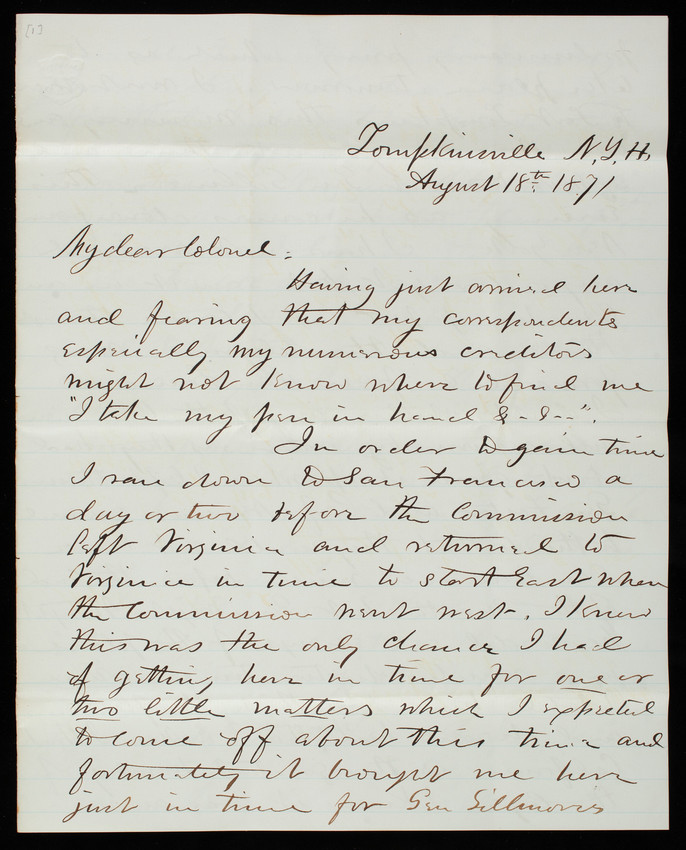 [1]
Tompkinsville N.Y.H.
August 18th 1871
My dear Colonel:
Having just arrived here
and fearing that my correspondents
especially my numerous creditors
might not know where to find me
"I take my pen in hand &-&--".
In order to gain time
I ran down to San Francisco a
day or two before the Commission
left Virginia and returned to
Virginia in time to start East when
the Commission went west. I knew
this was the only chance I had
of getting here in time for one or
two little matters which I expected
to come off about this time and
fortunately it brought me here
just in time for Gen Gillmore's